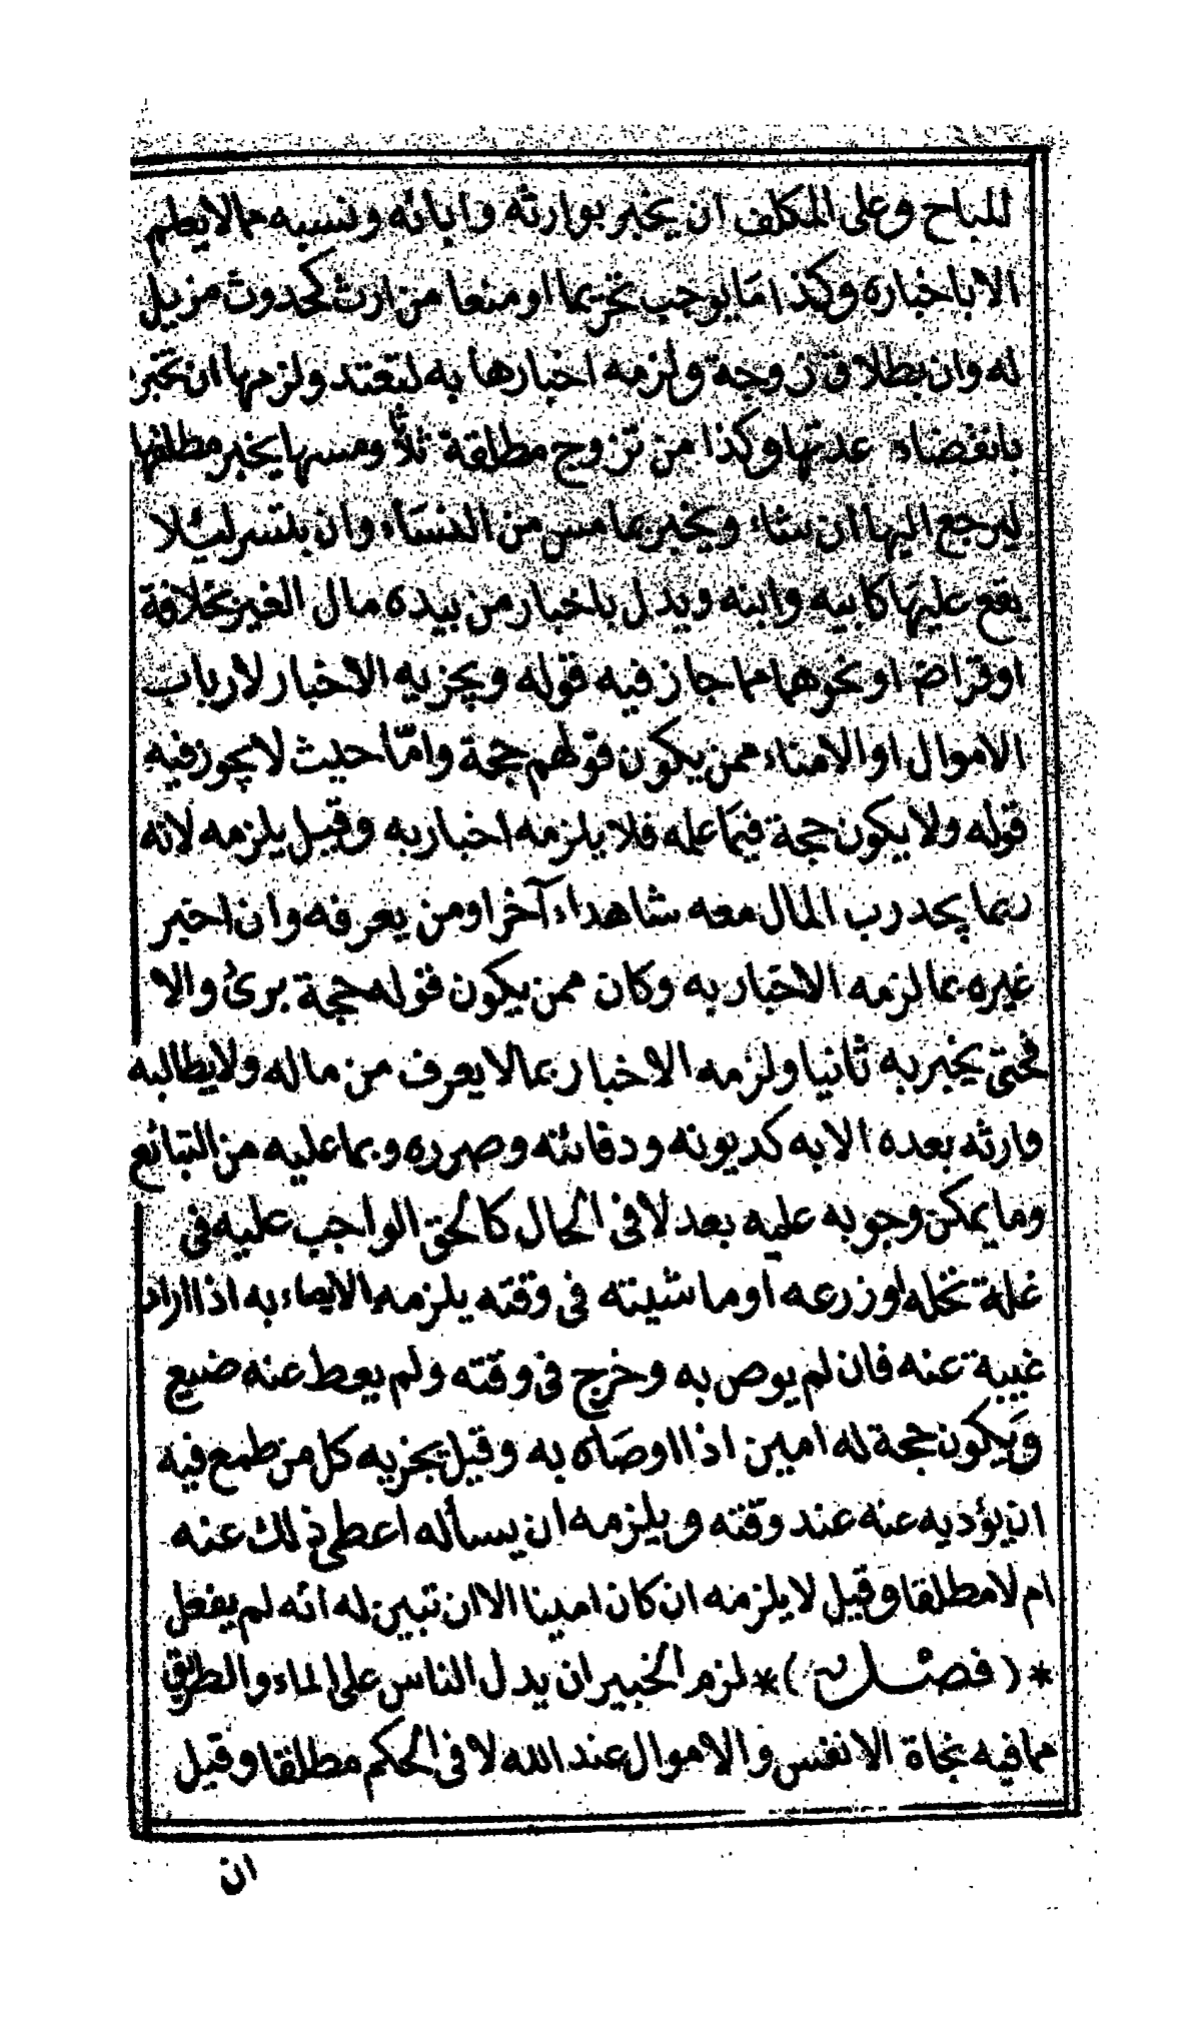 للمباح وعلى المكلف ان يخبر بوارثه وابائه ونسبه مما لا يعلم
الا باخباره وكذا ما يوجب تحريما او منعا من ارث كحدوث مزيل
له وان بطلاق زوجة ولزمه اخبارها به لتعتد ولزمها ان تخبره
بانقضاء عدتها وكذا من تزوج مطلقة ثلاثا ومسها يخبر مطلقها
ليرجع اليها ان شاء ويخبر بما مس من النساء وان بتسر لئلا
يقع عليها كابيه وابنه ويدل باخبار من بيده مال الغير بخلافة
او قراض او نحوهما مما جاز فيه قوله ويجزيه الاخبار لارباب
الاموال او الامناء ممن يكون قولهم حجة وامّا حيث لا يجوز فيه
قوله ولا يكون حجة فيما عمله فلا يلزمه اخبار به وقيل يلزمه لانه
ربما يجد رب المال معه شاهداء آخر او من يعرفه وان اخبر
غيره بما لزمه الاخبار به وكان ممن يكون قوله حجة برئ والا
فحتى يخبر به ثانيا ولزمه الاخبار بما لا يعرف من ماله ولا يطالبه
وارثه بعده الا به كديونه ودفائنه وصرره وبما عليه من التبائع
وما يمكن وجوبه عليه بعد لا فى الحال كالحق الواجب عليه فى
غلة نخله او زرعه او ماشيته فى وقته يلزمه الايصاء به اذا اراد
غيبة عنه فان لم يوص به وخرج فى وقته ولم يعط عنه ضيع
وَيكون حجة له امين اذا اوصاه به وقيل يجزيه كل من طمع فيه
ان يؤديه عنه عند وقته ويلزمه ان يسأله اعطى ذلك عنه
ام لا مطلقا وقيل لا يلزمه ان كان امينا الا ان تبين له انه لم يفعل
* ( فصل ) * لزم الخبير ان يدل الناس على الماء والطريق
مما فيه نجاة الانفس والاموال عند الله لا فى الحكم مطلقا وقيل
ان